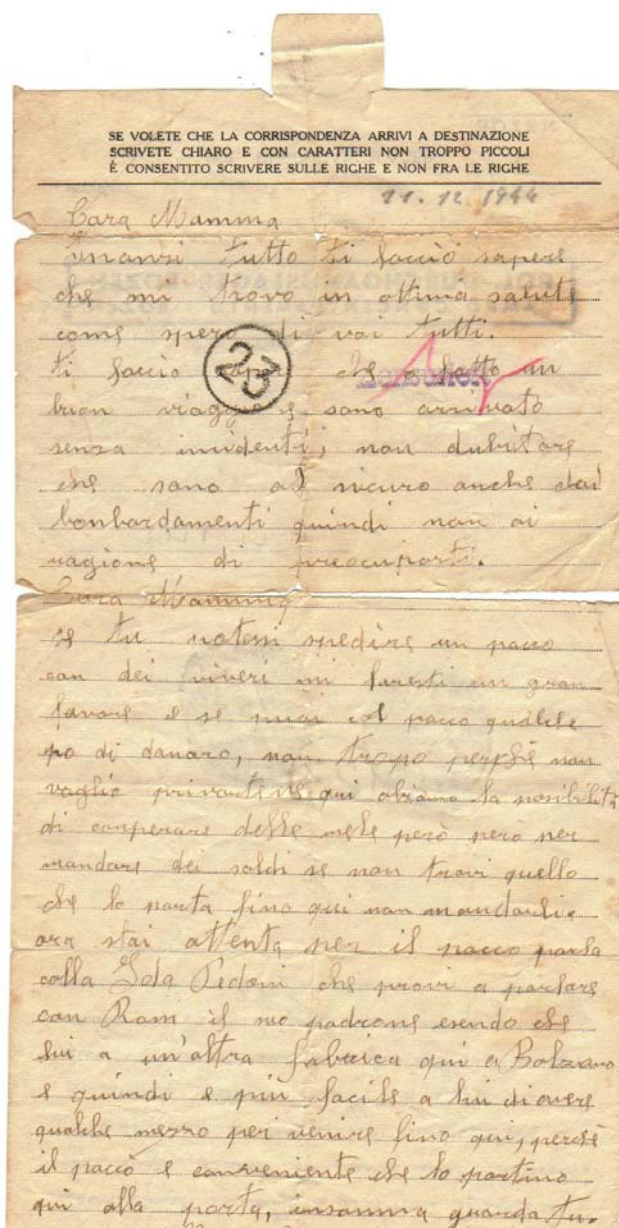 SE VOLETE CHE LA CORRISPONDENZA ARRIVI A DESTINAZIONE
SCRIVETE CHIARO E CON CARATTERI NON TROPPO PICCOLI
È CONSENTITO SCRIVERE SULLE RIGHE E NON FRA LE RIGHE
11.12 1944
Cara Mamma
Inanzi tutto ti faccio sapere
che mi trovo in ottima salute
come spero di voi tutti.
ti faccio che o fatto un
23
buon viaggio e sono arrivato
senza incidenti, non dubitare
che sono al sicuro anche dai
bonbardamenti quindi non ai
ragione di preocuparti.
Cara Mamma
se tu potessi spedire un pacco
con dei viveri mi faresti un gran
favore e se puoi col pacco qualche
po di danaro, non tropo perchè non
voglio privartene qui abiamo la posibilità
di conperare delle mele però per
mandare dei soldi se non trovi quello
che lo porta fino qui non mandarli.
ora stai attenta per il pacco parla
colla Ida Pedoni che provi a parlare
con Ram il suo padrone esendo che
lui a un'altra fabrica qui a Bolzano
e quindi e più facile a lui di avere
qualche mezzo per venire fino qui, perchè
il pacco e conveniente che lo portino
qui alla porta, insomma guarda tu.